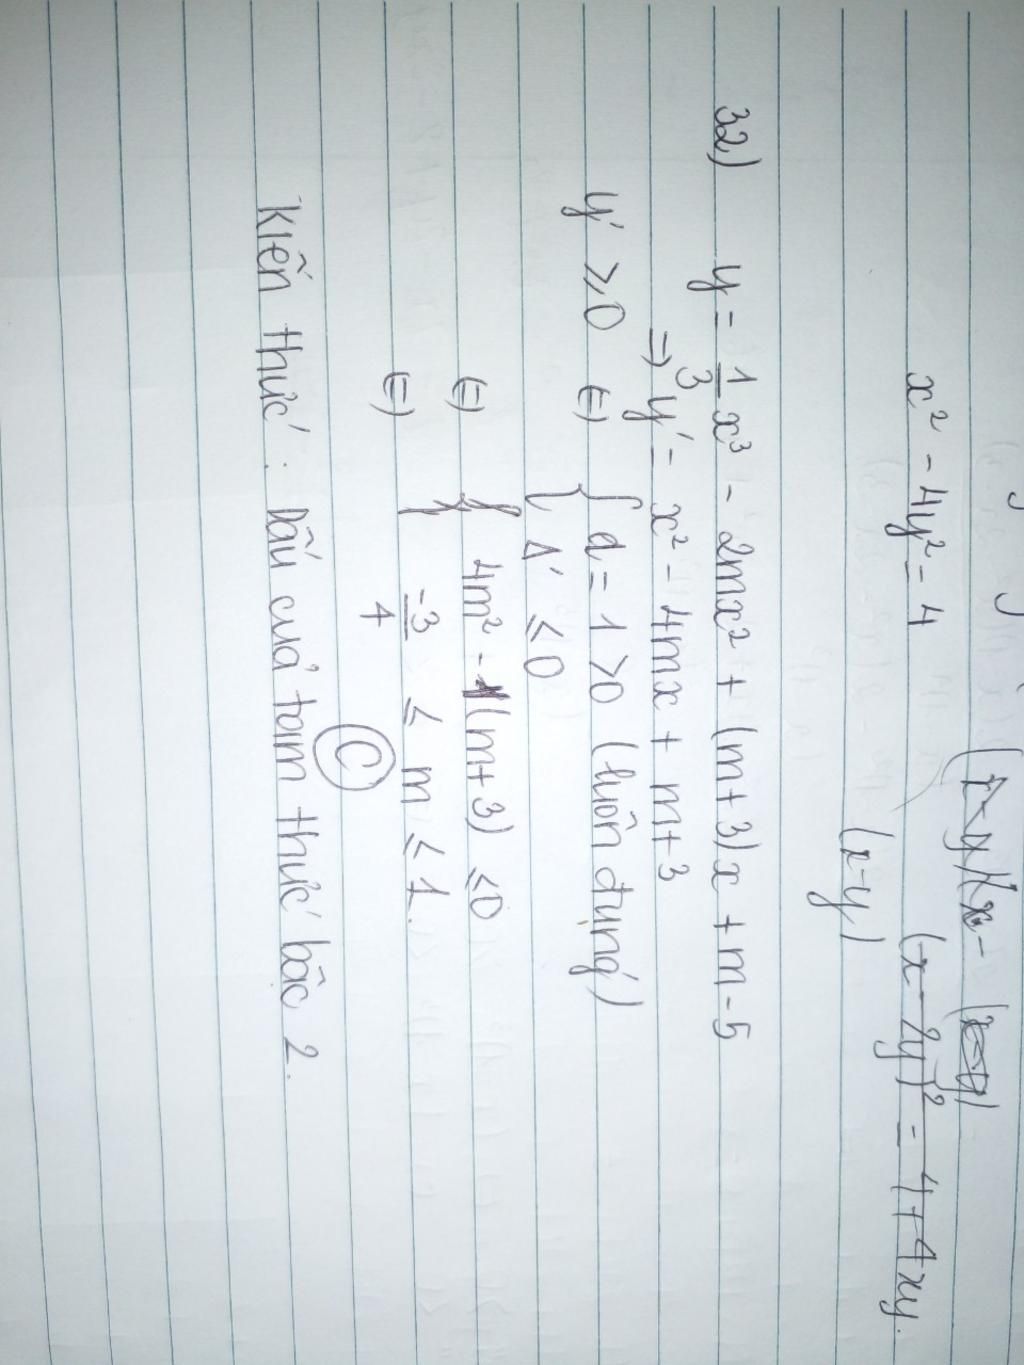 (x-y)(x- (x-y)
x² - 4y² = 4 (x - 2y)² = 4 + 4xy.
(x-y)
32) y = 1/3 x³ - 2mx² + (m+3)x + m-5
=> y' = x² - 4mx + m+3
y' ≥ 0 (=) { a = 1 > 0 (luôn đúng)
Δ' ≤ 0
(=) 4m² - 1(m+3) ≤ 0
(=) { -3/4 ≤ m ≤ 1.
C
Kiến thức : Dấu của tam thức bậc 2.